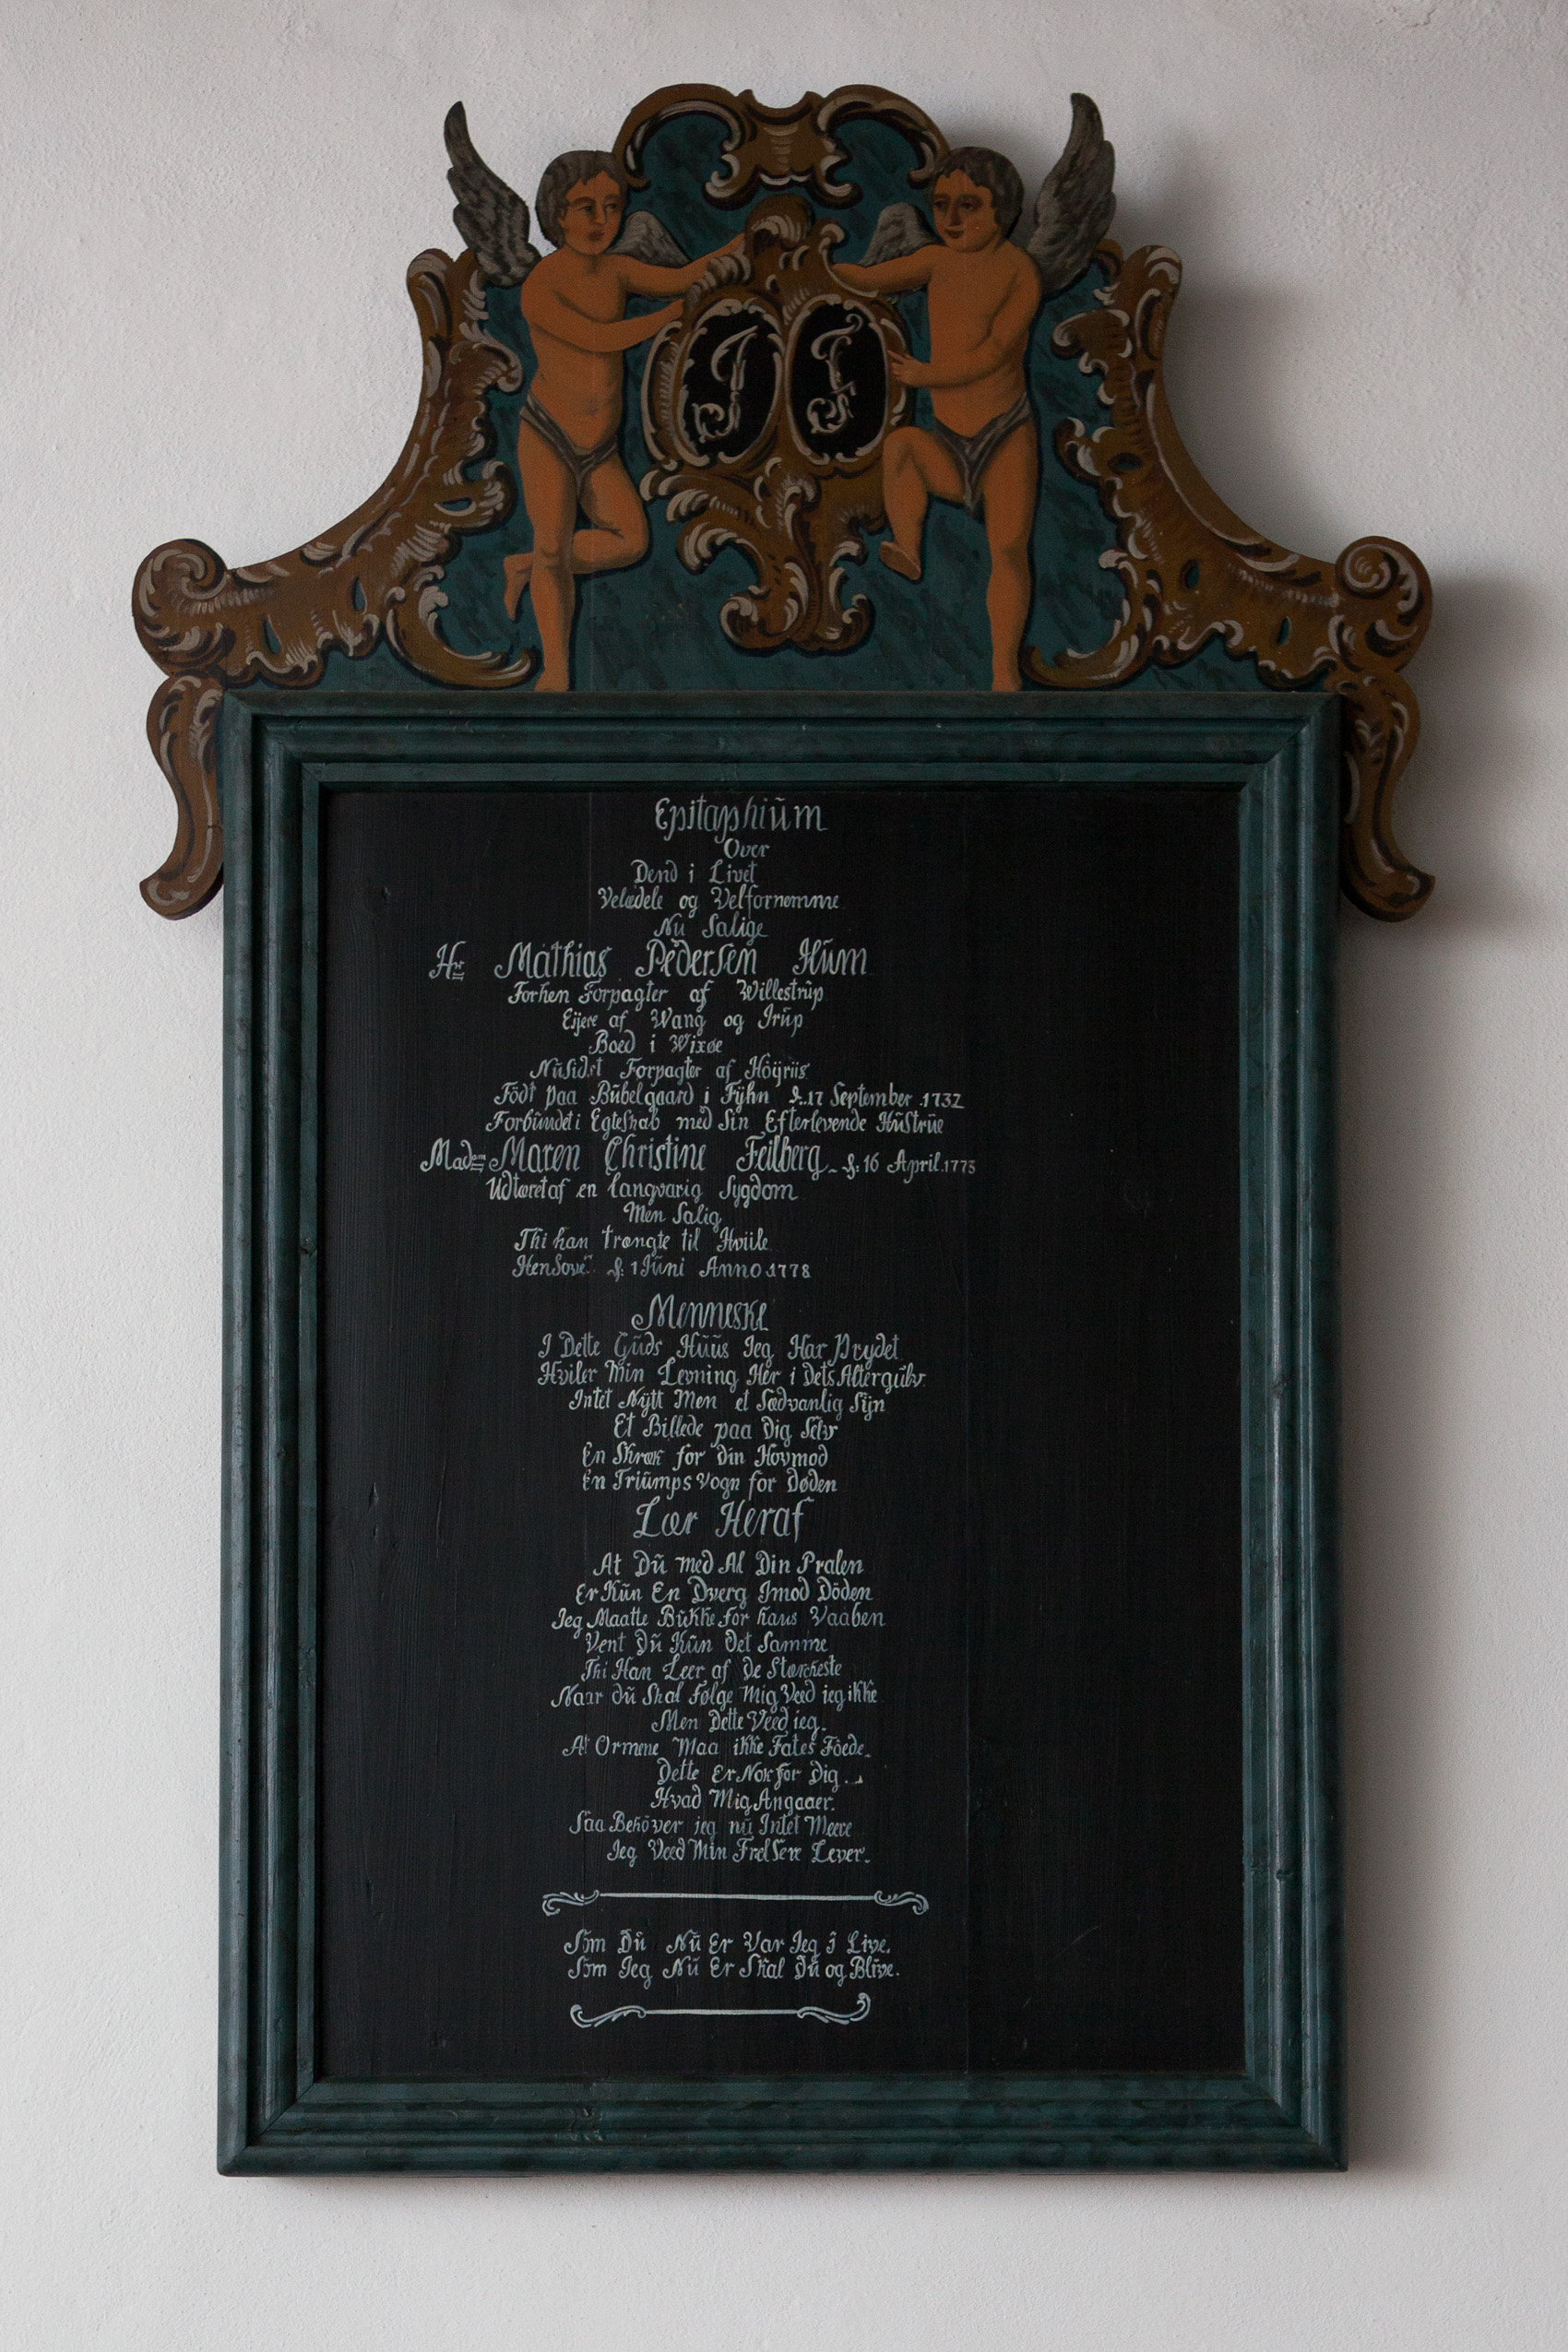 J S
J S
Epitaphiüm
Over
Dend i Livet
Velædele og Velfornemme
Nu Salige
Hr Mathias Pedersen Hüm
Forhen Forpagter af Willestrüp
Eijere af Wang og Irüp
Boed i Wixøe
Nüsidst Forpagter af Höÿriis
Födt paa Bübelgaard i Fÿhn d. 17 September 1732
Forbündet i Egteskab med Sin Efterlevende Hüstrüe
Madme Maren Christine Feilberg d: 16 April 1773
Udtæret af en langvarig Sygdom
Men Salig
Thi han trængte til Hviile
HenSove d: 1 Jüni Anno 1778
Menneske
I Dette Güds Hüüs Jeg Har Prydet
Hviler Min Levning Her i Dets Altergülv
Intet Nÿtt Men et Sædvanlig Sÿn
Et Billede paa Dig Selv
En Skræk for Din Hovmod
En Triümps Vogn for Døden
Lær Heraf
At Dü med Al Din Pralen
Er Kün En Dverg Imod Döden
Jeg Maatte Bükke for hans Vaaben
Vent Dü Kün Det Samme
Thi Han Leer af De Stærcheste
Naar dü Skal Følge Mig Veed jeg ikke
Men Dette Veed jeg.
At Ormene Maa ikke Fates Föede.
Dette Er Nok for Dig
Hvad Mig Angaaer.
Saa Behöver jeg nü Intet Meere
Jeg Veed Min FrelSere Lever.
Som Dü Nü Er Var Jeg i Live.
Som Jeg Nü Er Skal Dü og Blive.